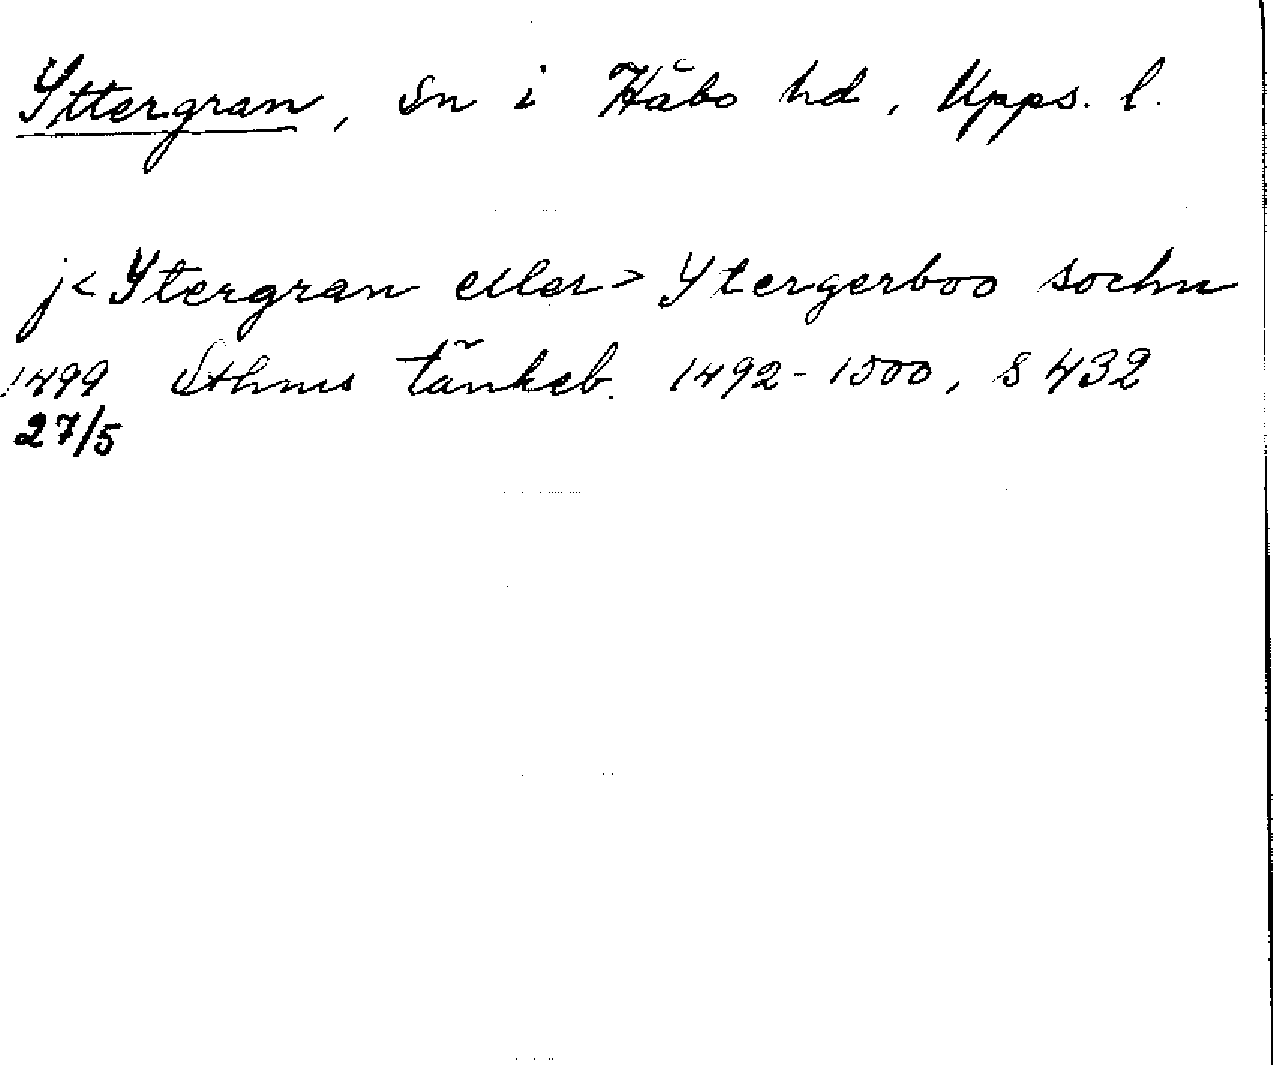 Yttergran, Sn i Håbo hd, Upps. l.
j<Ytergran eller> Ytergerboo sochn
1499 Sthms tänkeb. 1492-1500, s 432
27/5